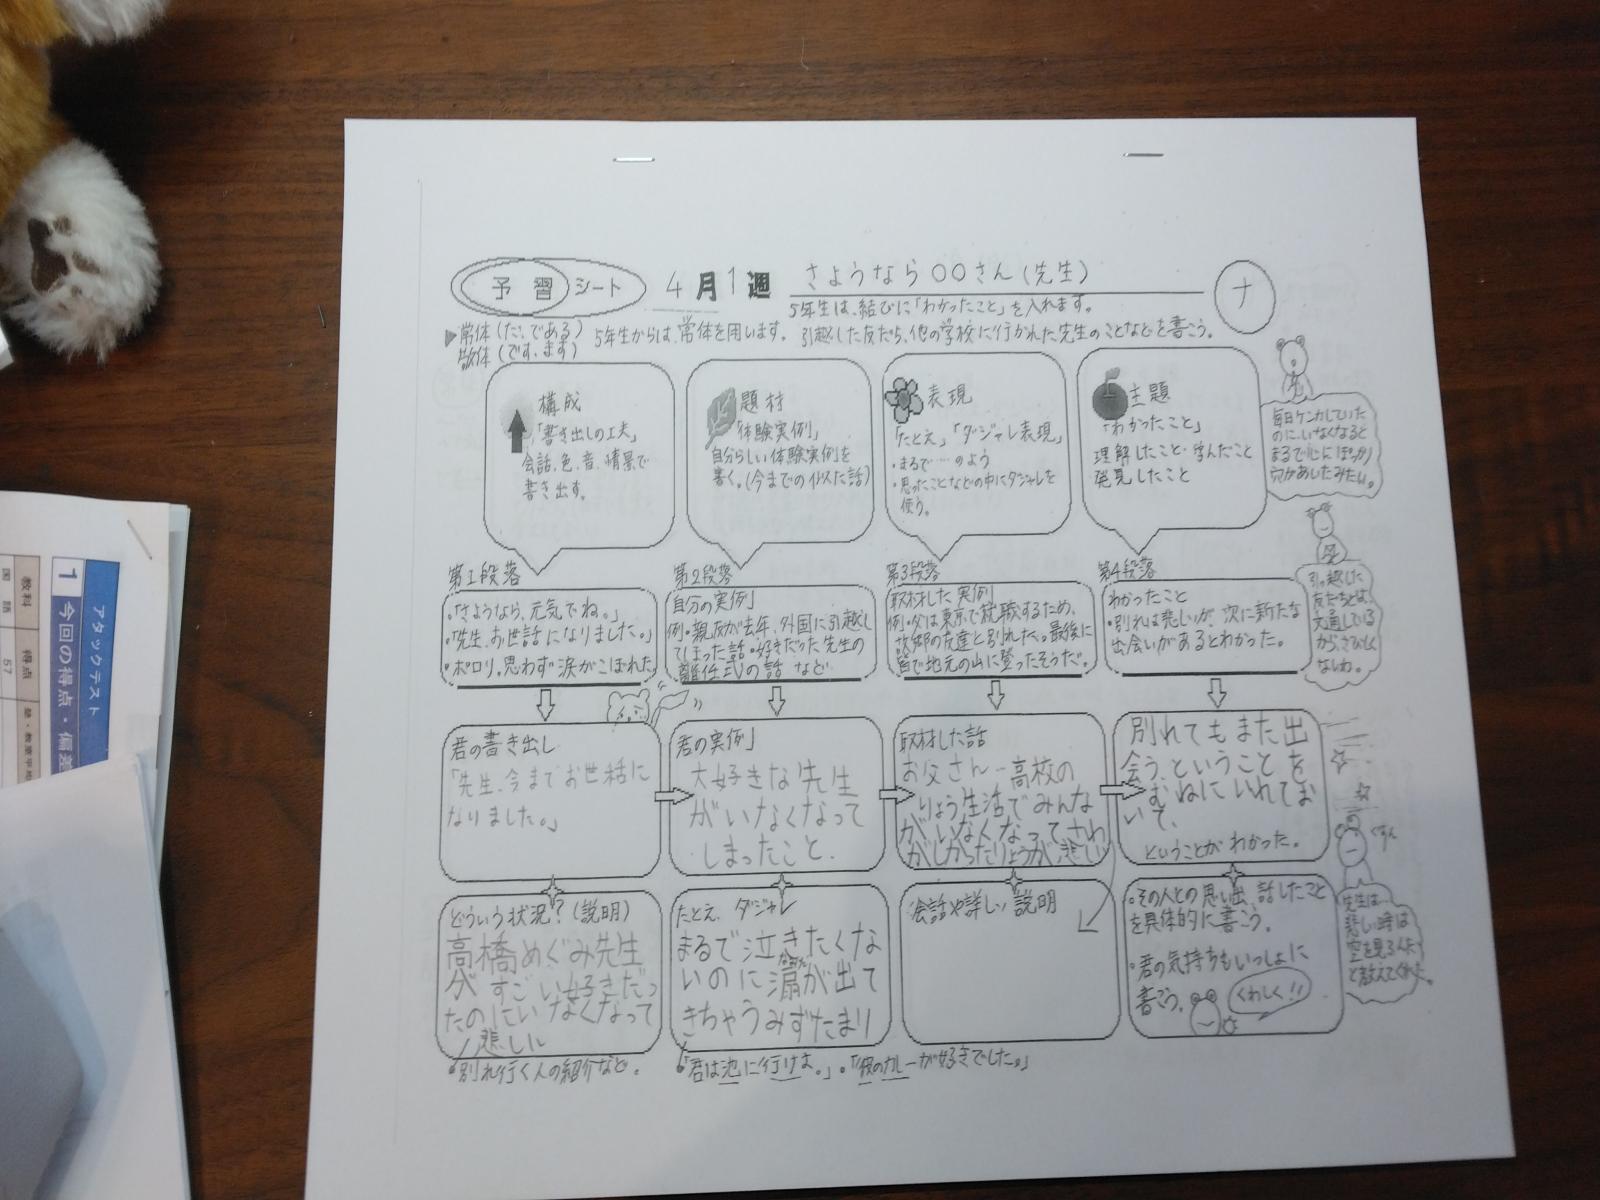 予習シート 4月1週 さようなら〇〇さん(先生) ナ
5年生は、結びに「わかったこと」を入れます。
▶常体(だ、である) 5年生からは、常体を用います。引越した友だち、他の学校に行かれた先生のことなどを書こう。
敬体(です、ます)
構成
「書き出しの工夫」
会話、色、音、情景で
書き出す。
題材
「体験実例」
自分らしい体験実例を
書く。(今までの似た話)
表現
「たとえ」「ダジャレ表現」
・まるで……のよう
・思ったことなどの中にダジャレを
使う。
主題
「わかったこと」
理解したこと・学んだこと
発見したこと
毎日ケンカしていた
のに、いなくなると
まるで心にぽっかり
穴があいたみたい。
第1段落
・「さようなら、元気でね。」
・「先生、お世話になりました。」
・ポロリ。思わず涙がこぼれた。
第2段落
自分の実例」
例・親友が去年、外国に引越し
てしまった話・好きだった先生の
離任式の話 など
第3段落
取材した実例」
例・父は東京で就職するため、
故郷の友達と別れた。最後に
皆で地元の山に登ったそうだ。
第4段落
わかったこと
・別れは悲しいが、次に新たな
出会いがあるとわかった。
引っ越した
友だちとは、
文通している
から、さびしく
ないわ。
君の書き出し
「先生、今までお世話に
なりました。」
君の実例」
大好きな先生
がいなくなって
しまったこと、
取材した話
お父さん-高校の
りょう生活でみんな
がいなくなってさわ
がしかったりょうが、悲しい
別れてもまた出
会う、ということを
むねにいれてお
いて、
ということがわかった。
ぐすん
どういう状況?(説明)
高橋めぐみ先生
がすごい好きだっ
たのにいなくなって
悲しい
・別れ行く人の紹介など。
たとえ、ダジャレ
まるで泣きたくな
いのに
が出て
きちゃうみずたまり
・「君は池に行けよ。」・「彼のカレーが好きでした。」
会話や詳しい説明
・その人との思い出、話したこと
を具体的に書こう。
・君の気持ちもいっしょに
書こう。
くわしく!!
先生は
悲しい時は
空を見るんだ
と教えてくれた。
アタックテスト
1 今回の得点・偏差
教科 得点
国語 57